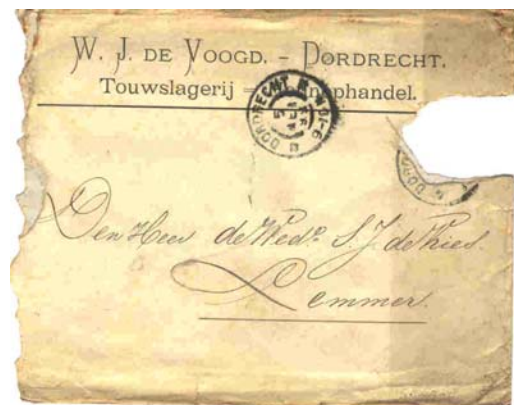 W. J. DE VOOGD. – DORDRECHT.
Touwslagerij – phandel.
DORDRECHT
DORD
Den Heer de Wedᵉ S. J. de Vries.
Lemmer.